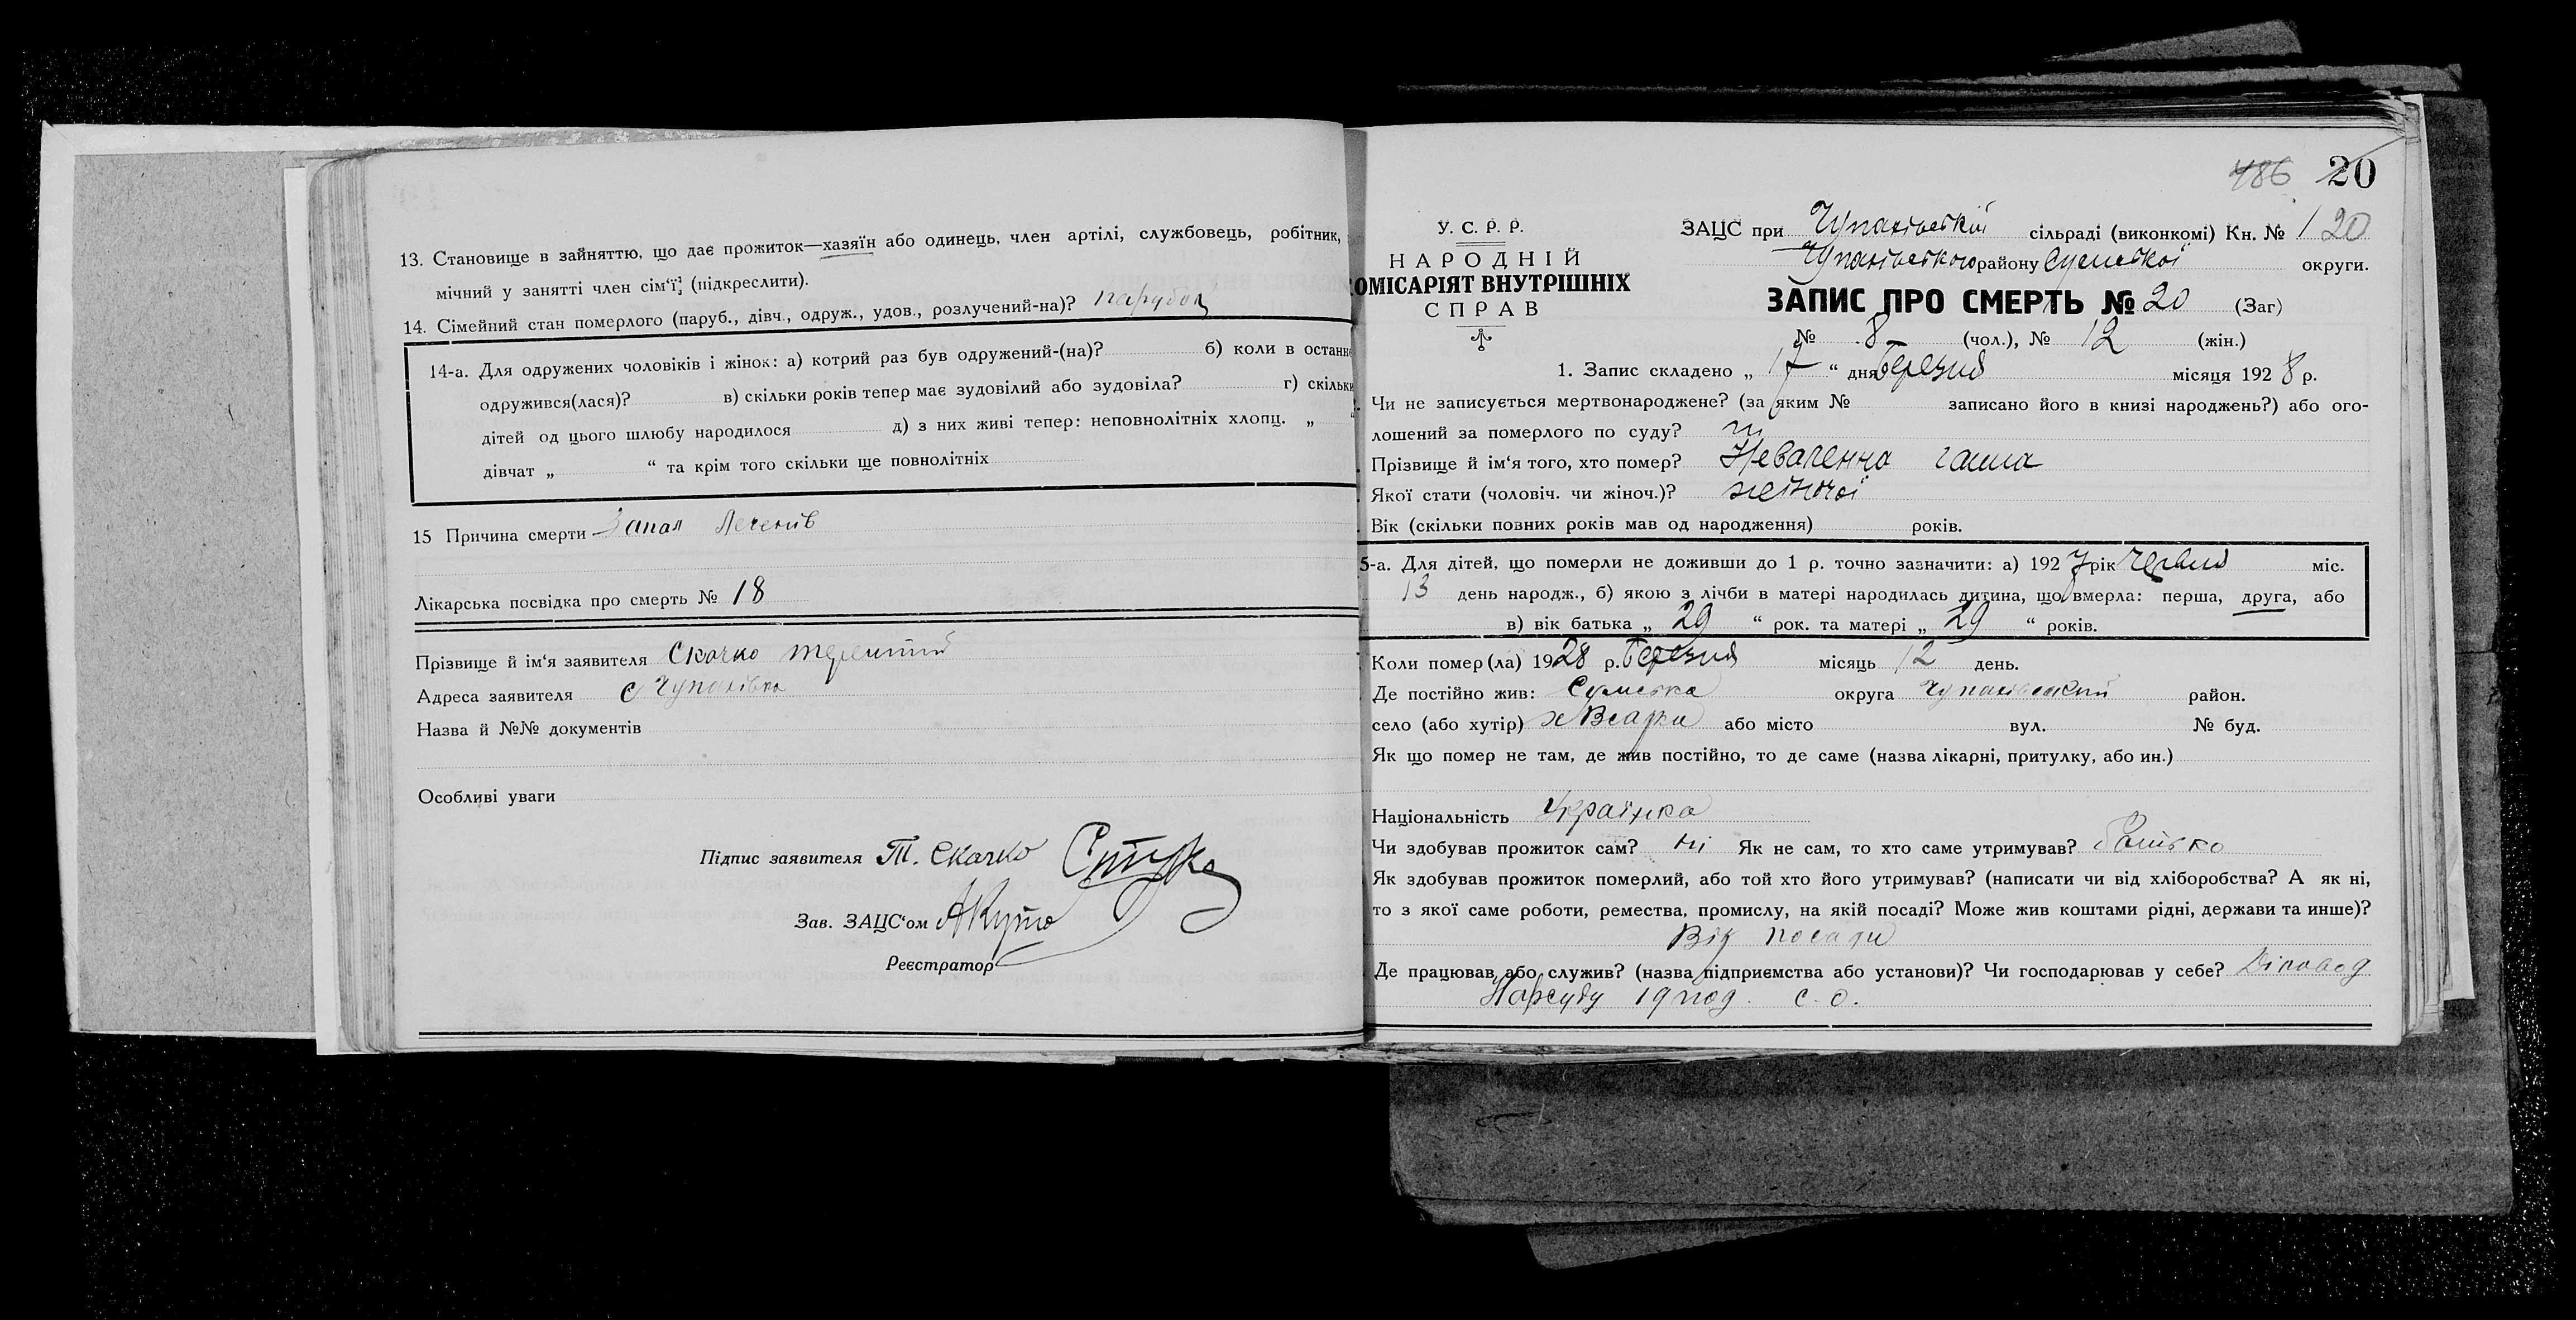 13. Становище в зайняттю, що дає прожиток—хазяїн або одинець, член артілі, службовець, робітник,
мічний у занятті член сім'ї (підкреслити).
14. Сімейний стан померлого (паруб., дівч., одруж., удов., розлучений-на)? парубок
14-а. Для одружених чоловіків і жінок: а) котрий раз був одружений-(на)? б) коли в останн
одружився(лася)? в) скільки років тепер має зудовілий або зудовіла? г) скільки
дітей од цього шлюбу народилося д) з них живі тепер: неповнолітніх хлопц. „
дівчат „ “ та крім того скільки ще повнолітніх
15 Причина смерти Запал Легенів
Лікарська посвідка про смерть № 18
Прізвище й ім'я заявителя Скачко Терентий
Адреса заявителя с Чупахівка
Назва й №№ документів
Особливі уваги
Підпис заявителя Т. Скачко
Зав. ЗАЦС'ом
Реєстратор
486 20
У. С. Р. Р.
НАРОДНІЙ
ОМІСАРІЯТ ВНУТРІШНІХ
СПРАВ
ЗАЦС при Чупахівській сільраді (виконкомі) Кн. № 1 20
Чупахівського району Сумської округи.
ЗАПИС ПРО СМЕРТЬ № 20 (Заг)
№ 8 (чол.), № 12 (жін.)
1. Запис складено „ 17 “ дня Березня місяця 1928 р.
Чи не записується мертвонароджене? (за яким № записано його в книзі народжень?) або ого-
лошений за померлого по суду? ні
Прізвище й ім'я того, хто помер? Ганна
Якої стати (чоловіч. чи жіноч.)? жіночої
Вік (скільки повних років мав од народження) років.
5-а. Для дітей, що померли не доживши до 1 р. точно зазначити: а) 1927 рік Червня міс.
13 день народж., б) якою з лічби в матері народилась дитина, що вмерла: перша, друга, або
в) вік батька „ 29 “ рок. та матері „ 29 “ років.
Коли помер(ла) 1928 р. Березня місяць 12 день.
Де постійно жив: Сумська округа Чупахівський район.
село (або хутір) або місто вул. № буд.
Як що помер не там, де жив постійно, то де саме (назва лікарні, притулку, або ин.)
Національність Українка
Чи здобував прожиток сам? ні Як не сам, то хто саме утримував? Батько
Як здобував прожиток померлий, або той хто його утримував? (написати чи від хліборобства? А як ні,
то з якої саме роботи, ремества, промислу, на якій посаді? Може жив коштами рідні, держави та инше)?
Від посади
Де працював або служив? (назва підприємства або установи)? Чи господарював у себе? Діловод
Нарсуду 19 с. о.